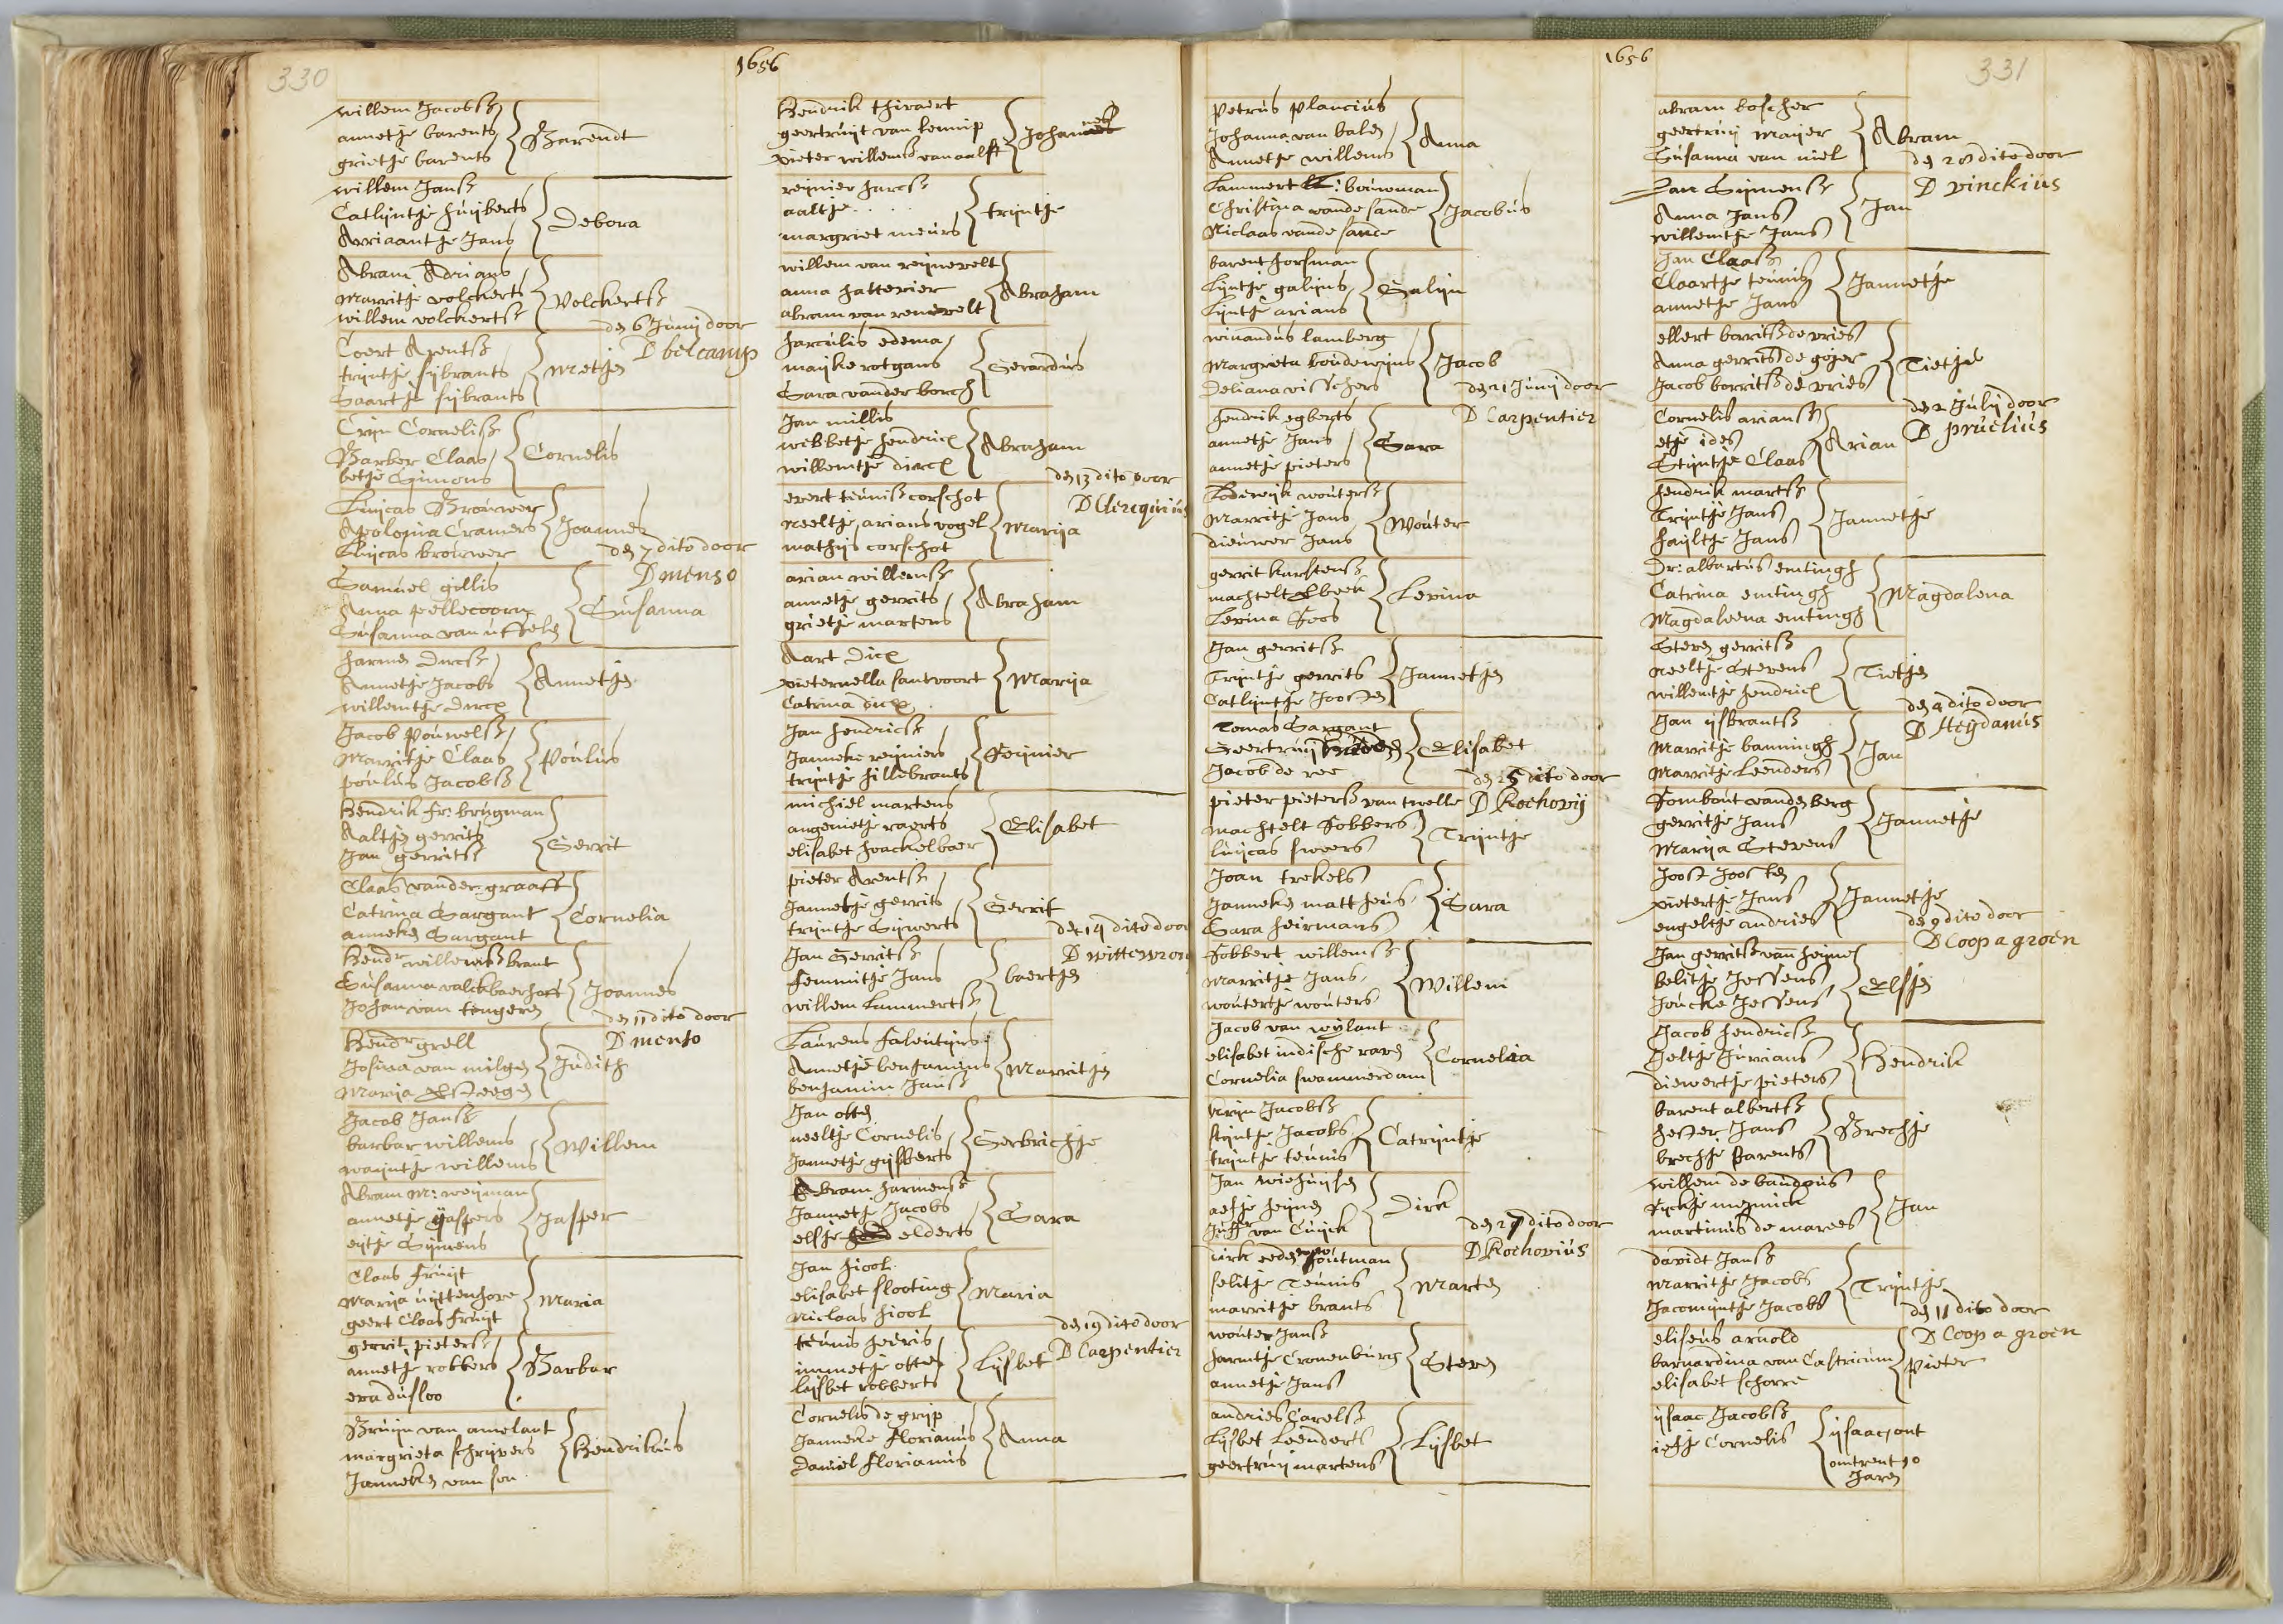 330
1656
willem Jacobsz
annetje barents
grietje barents
Barendt
willem Jansz
Catlyntje huijberts
Arriaantje Jans
Debora
Abram Adrians
Marritje volckerts
willem volckertsz
Volckertsz
den 6 Junij door
D belcamp
Coert Arentsz
trijntje sijbrants
Saartje sijbrants
Metjen
Crijn Cornelisz
Barber Claas
betje Simons
Cornelis
Luijcas Brouwer
Apolonia Cramers
Luijcas brouwer
Joannes
den 7 dito door
D menso
Samuel gillis
Anna pellecoorn
Susanna van uffelen
Susanna
harmen Dircsz
Annetje Jacobs
willemtje Dircx
Annetjen
Jacob pouwelsz
Marritje Claas
poulus Jacobsz
Poulus
Hendrik fr: brugman
Aaltjen gerrits
Jan gerritsz
Gerrit
Claas vander graaff
Catrina Sargant
anneken Sargant
Cornelia
Hendr willemsz brant
Susanna valckbaerhorst
Johan van tengeren
Joannes
den 11 dito door
D menso
Hendr grell
Josina van milgen
Maria
Judith
Jacob Jansz
barbar willems
waijntje willems
Willem
Abram M: weijman
annetje Jaspers
eijtje Sijmens
Jasper
Claas fruijt
Marija uijttenhove
geert Claas fruijt
Maria
gerrit pietersz
annetje robbers
eva dusloo
Barbar
Bruijn van amelant
margrieta schrijvers
Janneken van son
Hendrikus
Hendrik thivaert
geertruijt van lennip
pieter willemsz van aalst
Johannes
reijnier harcsz
aaltje . . . .
margriet meurs
trijntje
willem van reijnevelt
anna hatterier
abram van renevelt
Abraham
harculis edema
maijke rotgans
Sara vander borch
Gerardus
Jan millis
webbetje hendricx
willemtje dircx
Abraham
den 13 dito door
D Clercquius
evert teunisz corschot
neeltje arians vogel
mathijs corschot
Marija
arian willemsz
annetje gerrits
grietje martens
Abraham
Aart Dicx
pieternella santvoort
Catrina dicx
Marija
Jan hendricsz
Janneke reijniers
trijntje hillebrants
Reijnier
michiel martens
angenietje raerts
elisabet hoackelboer
Elisabet
pieter Arentsz
Jannetje gerrits
trijntje Sijwerts
Gerrit
den 14 dito door
D wittewron
Jan Gerritsz
femmitje Jans
willem Lammertsz
baertjen
Laurens falentijns
Annetje benjamins
benjamin Jansz
Marritjen
Jan otten
neeltje Cornelis
Jannetje gijsberts
Gerbrichje
Abram harmensz
Jannetje Jacobs
elsje elderts
Sara
Jan hiool
elisabet slooting
Niclaas hiool
Maria
den 19 dito door
D Carpentier
teunis heeris
immetje otten
Lijsbet robberts
Lijsbet
Cornelis de grijp
Janneke florianus
Daniel florianus
Anna
1656
331
Petrus plancius
Johanna van balen
Annetje willems
Anna
Lammert bouwman
Christina vande sande
Niclaas vande sande
Jacobus
barent horsman
Lijntje galijns
Lijntje arians
Galijn
winandus lamberg
Margrieta boudewijns
Deliana visschers
Jacob
den 21 Junij door
D Carpentier
hendrik egberts
annetje Jans
annetje pieters
Sara
Lodewijk woutersz
Marritje Jans
dieuwer Jans
Wouter
gerrit karstensz
machtelt Elbeek
Levina Roos
Levina
Jan gerritsz
Trijntje gerrits
Catlijntje Joosten
Jannetjen
Tomas Sargant
Geertruij
Jacob de ree
Elisabet
den 25 dito door
D Kochovij
pieter pietersz van twelle
Machtelt Robbers
luijcas sweers
Trijntje
Joan trekels
Janneken mattheus
Sara heirmans
Sara
Robbert willemsz
Marritje Jans
woutertje wouters
Willem
Jacob van wijlant
elisabet indische raven
Cornelia swammerdam
Cornelia
Krijn Jacobsz
stijntje Jacobs
trijntje teunis
Catrijntje
Jan wiehuijsen
aefje heijnen
Juffr van Cuijck
Dirk
den 27 dito door
D Kochovius
dirk eeden houtman
selitje Teunis
marritje brants
Marten
wouter Jansz
harmtje Cronenburg
annetje Jans
Steven
andries Carelsz
Lijsbet Leenderts
geertruij martens
Lijsbet
abram bosscher
geertruij Maijer
Susanna van niel
Abram
den 28 dito door
D vinckius
Jan Sijmensz
Anna Jans
willemtje Jans
Jan
Jan Claasz
Claartje teunis
annetje Jans
Jannetje
ellert borritsz de vries
Anna gerrits de goijer
Jacob borritsz de vries
Tietje
den 2 Julij door
D pruelius
Cornelis ariansz
etje ides
Stijntje Claas
Arian
hendrik martsz
Trijntje Jans
haijltje Jans
Jannetje
Dr: albartus emtingh
Catrina emtingh
Magdaleena emtingh
Magdalena
Steven gerritsz
neeltje Stevens
willemtje hendricx
Tietjen
den 4 dito door
D Heijdanus
Jan ijsbrantsz
Marritje banningh
Marritje Leenders
Jan
Rombout vanden berg
gerritje Jans
Marija Stevens
Jannetje
Joost Joosten
pietertje Jans
engeltje andries
Jannetje
den 9 dito door
D Coop a groen
Jan gerritsz van heijne
belitje Jessens
Joucke Jessens
Elsjen
Jacob hendricsz
Jeltje Jurrians
diewertje pieters
Hendrik
barent albertsz
hester Jans
brechje barents
Brechje
willem de baudous
fijckje meijnick
martinus de marees
Jan
davidt Jansz
Marritje Jacobs
Jacomijntje Jacobs
Trijntje
den 11 dito door
D Coop a groen
eliseus arnold
barnardina van Castricum
elisabet schorre
Pieter
ijsaac Jacobsz
ietje Cornelis
ijsaac, out
omtrent 10
Jaren